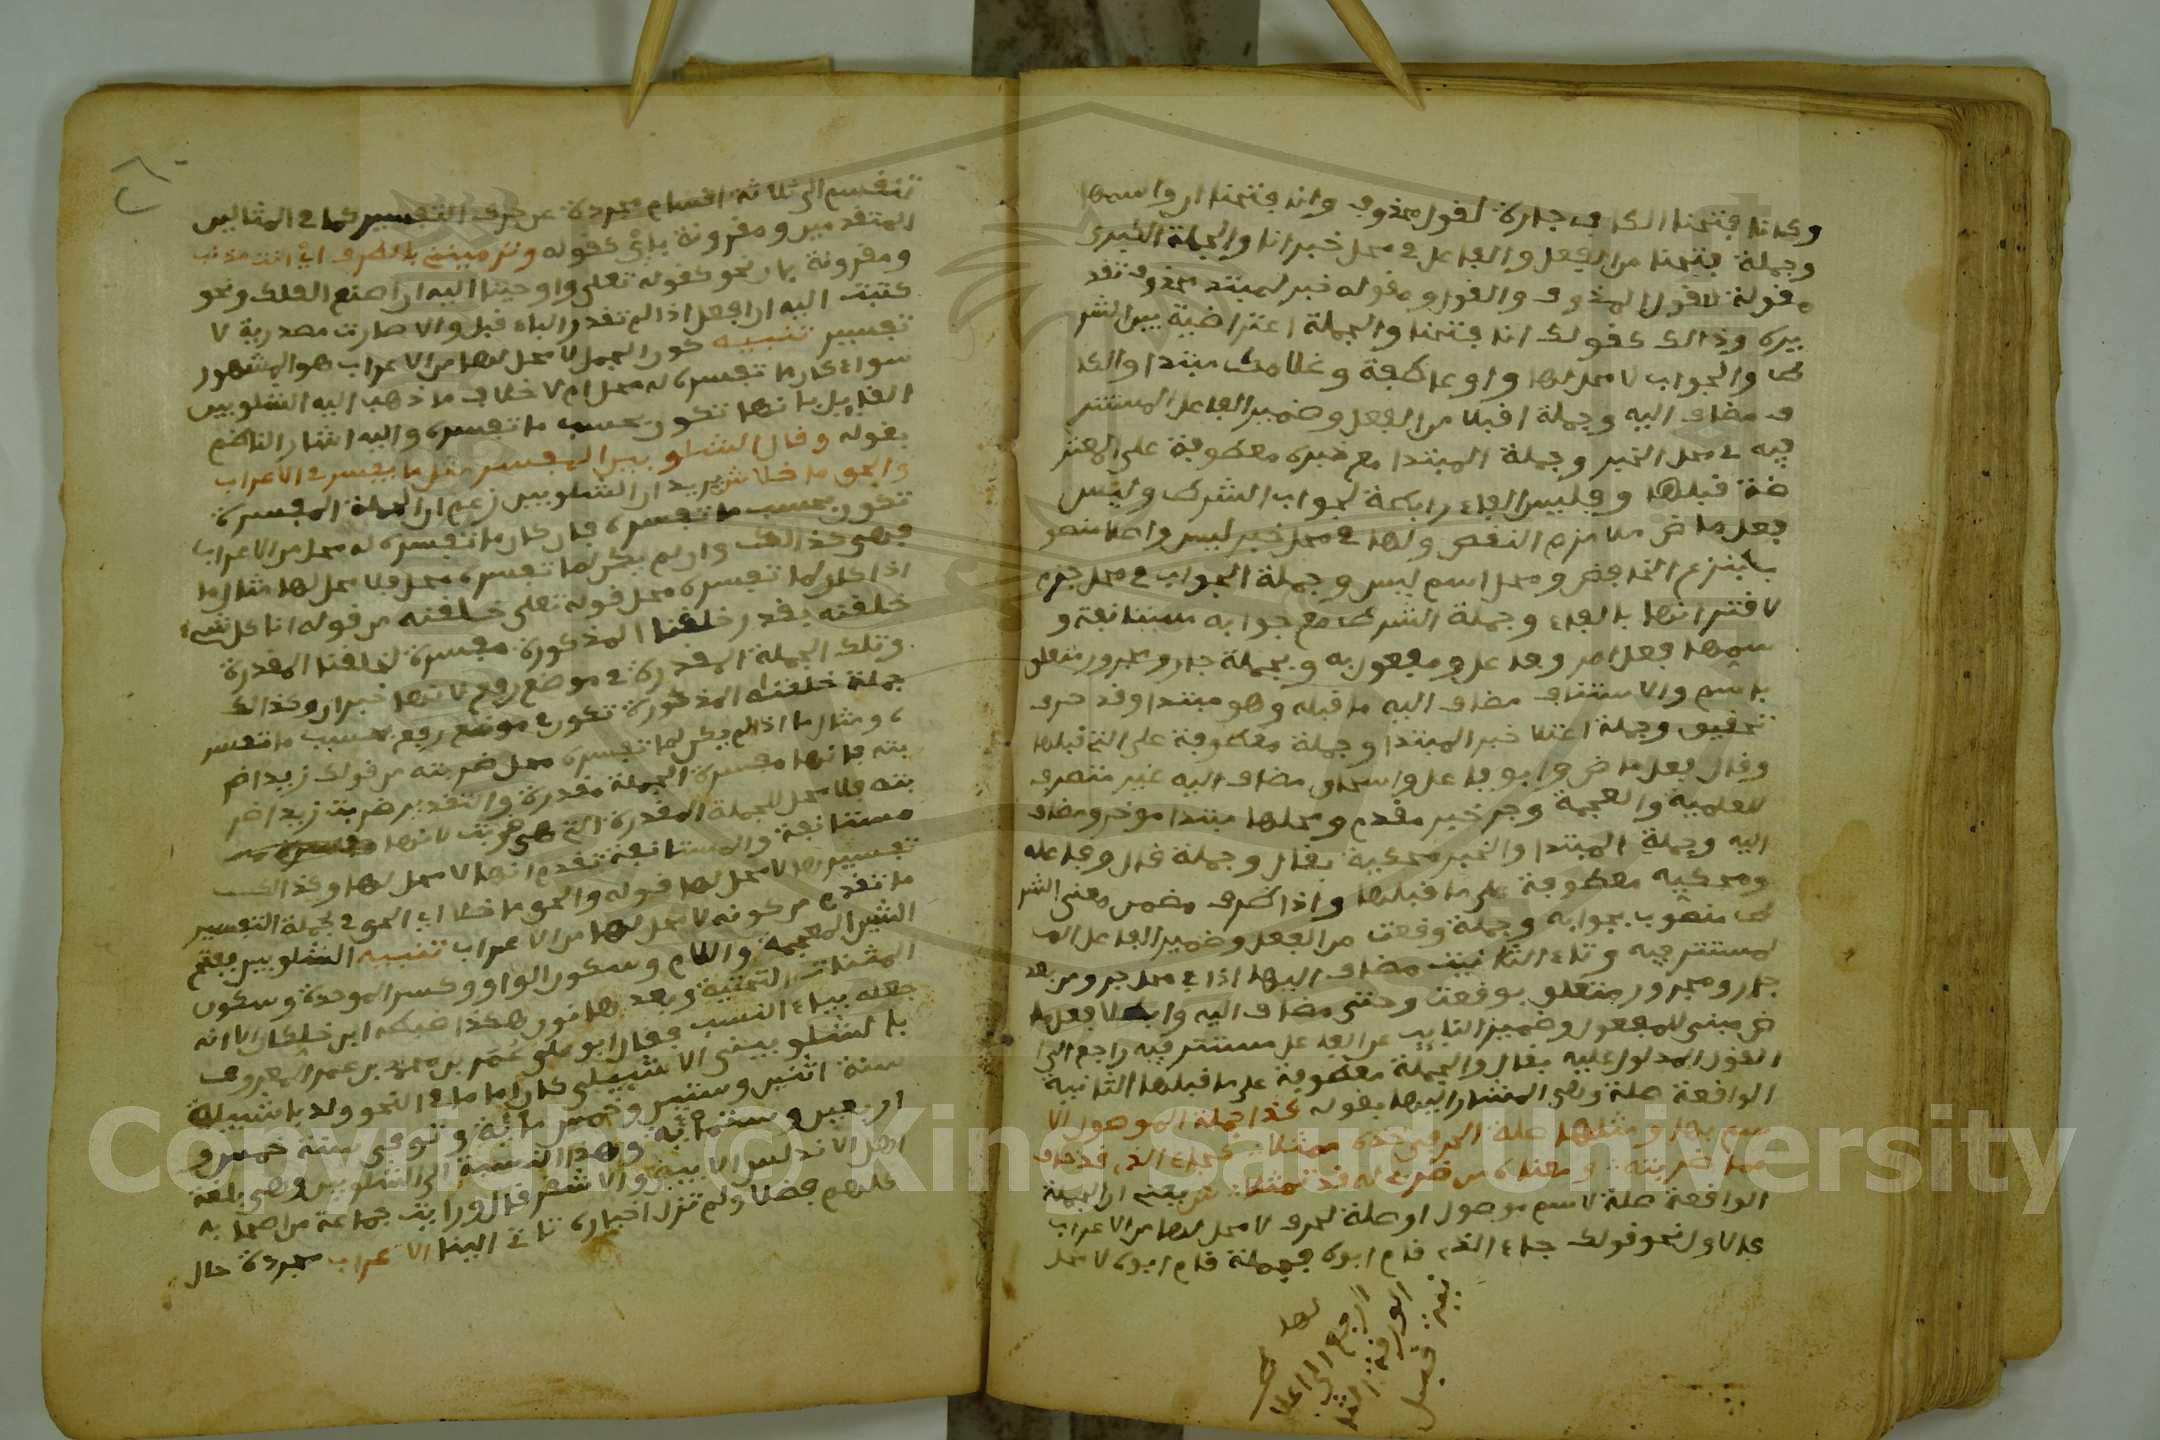 وكانا فتحنا الكاف جارة لقول محذوف وانا فتحنا ان واسمها
وجملة فتحنا من الفعل والفاعل في محل خبر انا والجملة الكبرى
مقولة لاقول المحذوف والقول ومقوله خبر لمبتدا محذوف تقد
يره وذالك كقولك انا فتحنا والجملة اعتراضية بين الشر
ط والجواب لا محل لها واو عاطفة وغلامك مبتدا والكا
ف مضاف اليه وجملة اقبلا من الفعل وضمير الفاعل المستتر
فيه في محل الخبر وجملة المبتدا مع خبره معطوفة على المعتر
ضة قبلها وفليس الفاء رابطة لجواب الشرط وليس
فعل ماض ملازم النقص ولها في محل خبر ليس واصلا منصو
ب بنزع الخافض ومحل اسم ليس وجملة الجواب في محل جزم
لاقترانها بالفاء وجملة الشرط مع جوابه مستانفة و
سمها فعل امر وفاعل ومفعول به وبجملة جار ومجرور متعلق
باسم والاستناف مضاف اليه ما قبله وهو مبتدا وقد حرف
تحقيق وجملة اعتلا خبر المبتدا وجملة معطوفة على التي قبلها
وقال فعل ماض وابو فاعل واسحاق مضاف اليه غير منصرف
للعلمية والعجمة وجر خبر مقدم ومحلها مبتدا موخر ومضاف
اليه وجملة المبتدا والخبر محكية بقال وجملة قال وفاعله
ومحكيه معطوفة على ما قبلها واذا ظرف مضمن معنى الشر
ط منصوب بجوابه وجملة وقعت من الفعل وضمير الفاعل الم
لمستتر فيه وتاء التانيث مضاف اليها اذا في محل جر ومن بعد
جار ومجرور متعلق بوقعت وحتى مضاف اليه
ض مبني للمفعول وضمير النايب عن الفاعل مستتر فيه راجع الى
القول المدلول عليه بقال والجملة معطوفة على ما قبلها الثانية
الواقعة صلة وهي المشار اليها بقوله كذا جملة الموصول الا
سم بها ومثلها صلة الحرفي كجاء الذي قد طاف
الواقعة صلة لاسم موصول او صلة لحرف لا محل لها من الاعراب
فالاول نحو قولك جاء الذي قام ابوه فجملة قام ابوه لا محل
لها
ارجع الى اعلا
الورقة
بقية فصل
تنقسم الى ثلاثة اقسام مجردة عن حرف التفسير كما في المثالين
المتقدمين ومقرونة باي كقوله وترمينني بالطرف اي انت مذنب
ومقرونة بان نحو كقوله تعلى واوحينا اليه ان اصنع الفلك ونحو
كتبت اليه ان افعل اذا لم تقدر الباء قبل والا صارت مصدرية لا
تفسير تنبيه كون الجمل لا محل لها من الاعراب هو المشهور
سواء كان ما تفسره له محل ام لا خلاف ما ذهب اليه الشلوبين
القايل بانها تكون بحسب ما تفسره واليه اشار الناظم
بقوله وقال الشلوبين المفسر مثل ما يفسر في الاعراب
والحق ما خلا ش يريد ان الشلوبين زعم ان الجملة المفسرة
تكون بحسب ما تفسره فان كان ما تفسره له محل من الاعراب
فهي كذالك وان لم يكن لما تفسره محل فلا محل لها مثال ما
اذا كان لما تفسره محل قوله تعلى خلقنه من قوله انا كل شيء
خلقنه بقدر خلقنا المذكورة مفسرة لخلقنا المقدرة
وتلك الجملة المقدرة في موضع رفع لانها خبر ان وكذالك
جملة خلقناه المذكورة تكون في موضع رفع بحسب ما تفسر
ه ومثال ما اذا لم يكن لما تفسره محل ضربته من قولك زيدا ضر
بته فانها مفسرة الجملة مقدرة والتقدير ضربت زيدا ضر
بته فلا محل للجملة المقدرة التي هي ضربت لانها
مستانفة والمستانفة تقدم انها لا محل لها وكذالك
تفسيرها لا محل لها قوله والحق ما خلا اي الحق في جملة التفسير
ما تقدم من كونه لا محل لها من الاعراب تنبيه الشلوبين بفتح
الشين المعجمة واللام وسكون الواو وكسر الموحدة وسكون
المثنات التحتية وبعدها نون هكذا ضبطه ابن خلكان الا انه
جعله بياء النسب وقال ابو علي عمر بن محمد بن عمر المعروف
بالشلوبيني الاشبيلي كان اماما في النحو ولد باشبيلة
سنة اثنين وستين وخمس مائة وتوفي سنة خمس و
اربعين وستمائة وهذا النسبة الى الشلوبين وهي بلغة
اهل الاندلس الابيض والاشقر قال ورايت جماعة من اصحابه
كلهم فضلا ولم تزل اخباره تاتي الينا الاعراب مجردة حال